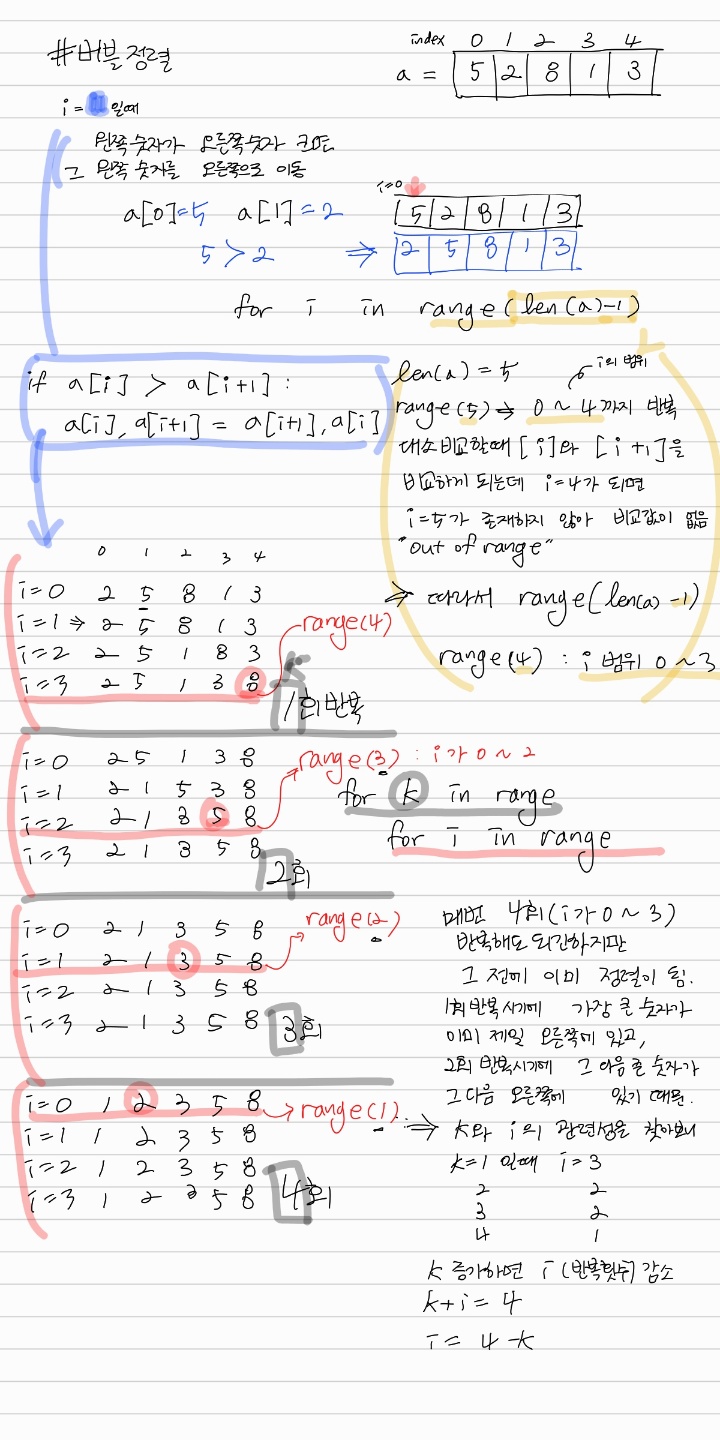 #버블정렬
index 0 1 2 3 4
a = 5 2 8 1 3
i = 일때
왼쪽숫자가 오른쪽숫자 크면
그 왼쪽 숫자를 오른쪽으로 이동
i=0
a[0]=5 a[1]=2
5 2 8 1 3
5 > 2 ⇒ 2 5 8 1 3
for i in range(len(a)-1)
if a[i] > a[i+1] :
a[i], a[i+1] = a[i+1], a[i]
len(a) = 5
i의 범위
range(5) → 0 ~ 4까지 반복
대소비교할때 [i]와 [i+1]을
비교하게 되는데 i=4가 되면
i=5가 존재하지 않아 비교값이 없음
"out of range"
⇒ 따라서 range(len(a)-1)
range(4) : i 범위 0~3
0 1 2 3 4
i=0 2 5 8 1 3
i=1 ⇒ 2 5 8 1 3
i=2 2 5 1 8 3
i=3 2 5 1 3 8
range(4)
k
1회반복
i=0 2 5 1 3 8
i=1 2 1 5 3 8
i=2 2 1 3 5 8
i=3 2 1 3 5 8
range(3) : i가 0~2
2회
for k in range
for i in range
i=0 2 1 3 5 8
i=1 2 1 3 5 8
i=2 2 1 3 5 8
i=3 2 1 3 5 8
range(2)
3회
i=0 1 2 3 5 8
i=1 1 2 3 5 8
i=2 1 2 3 5 8
i=3 1 2 2 5 8
range(1)
4회
매번 4회(i가 0~3)
반복해도 되긴하지만
그 전에 이미 정렬이 됨.
1회 반복시기에 가장 큰 숫자가
이미 제일 오른쪽에 있고,
2회 반복시기에 그 다음 큰 숫자가
그다음 오른쪽에 있기 때문.
⇒ k와 i의 관련성을 찾아보니
k=1 일때 i=3
2 2
3 2
4 1
k 증가하면 i (반복횟수) 감소
k+i = 4
i = 4-k